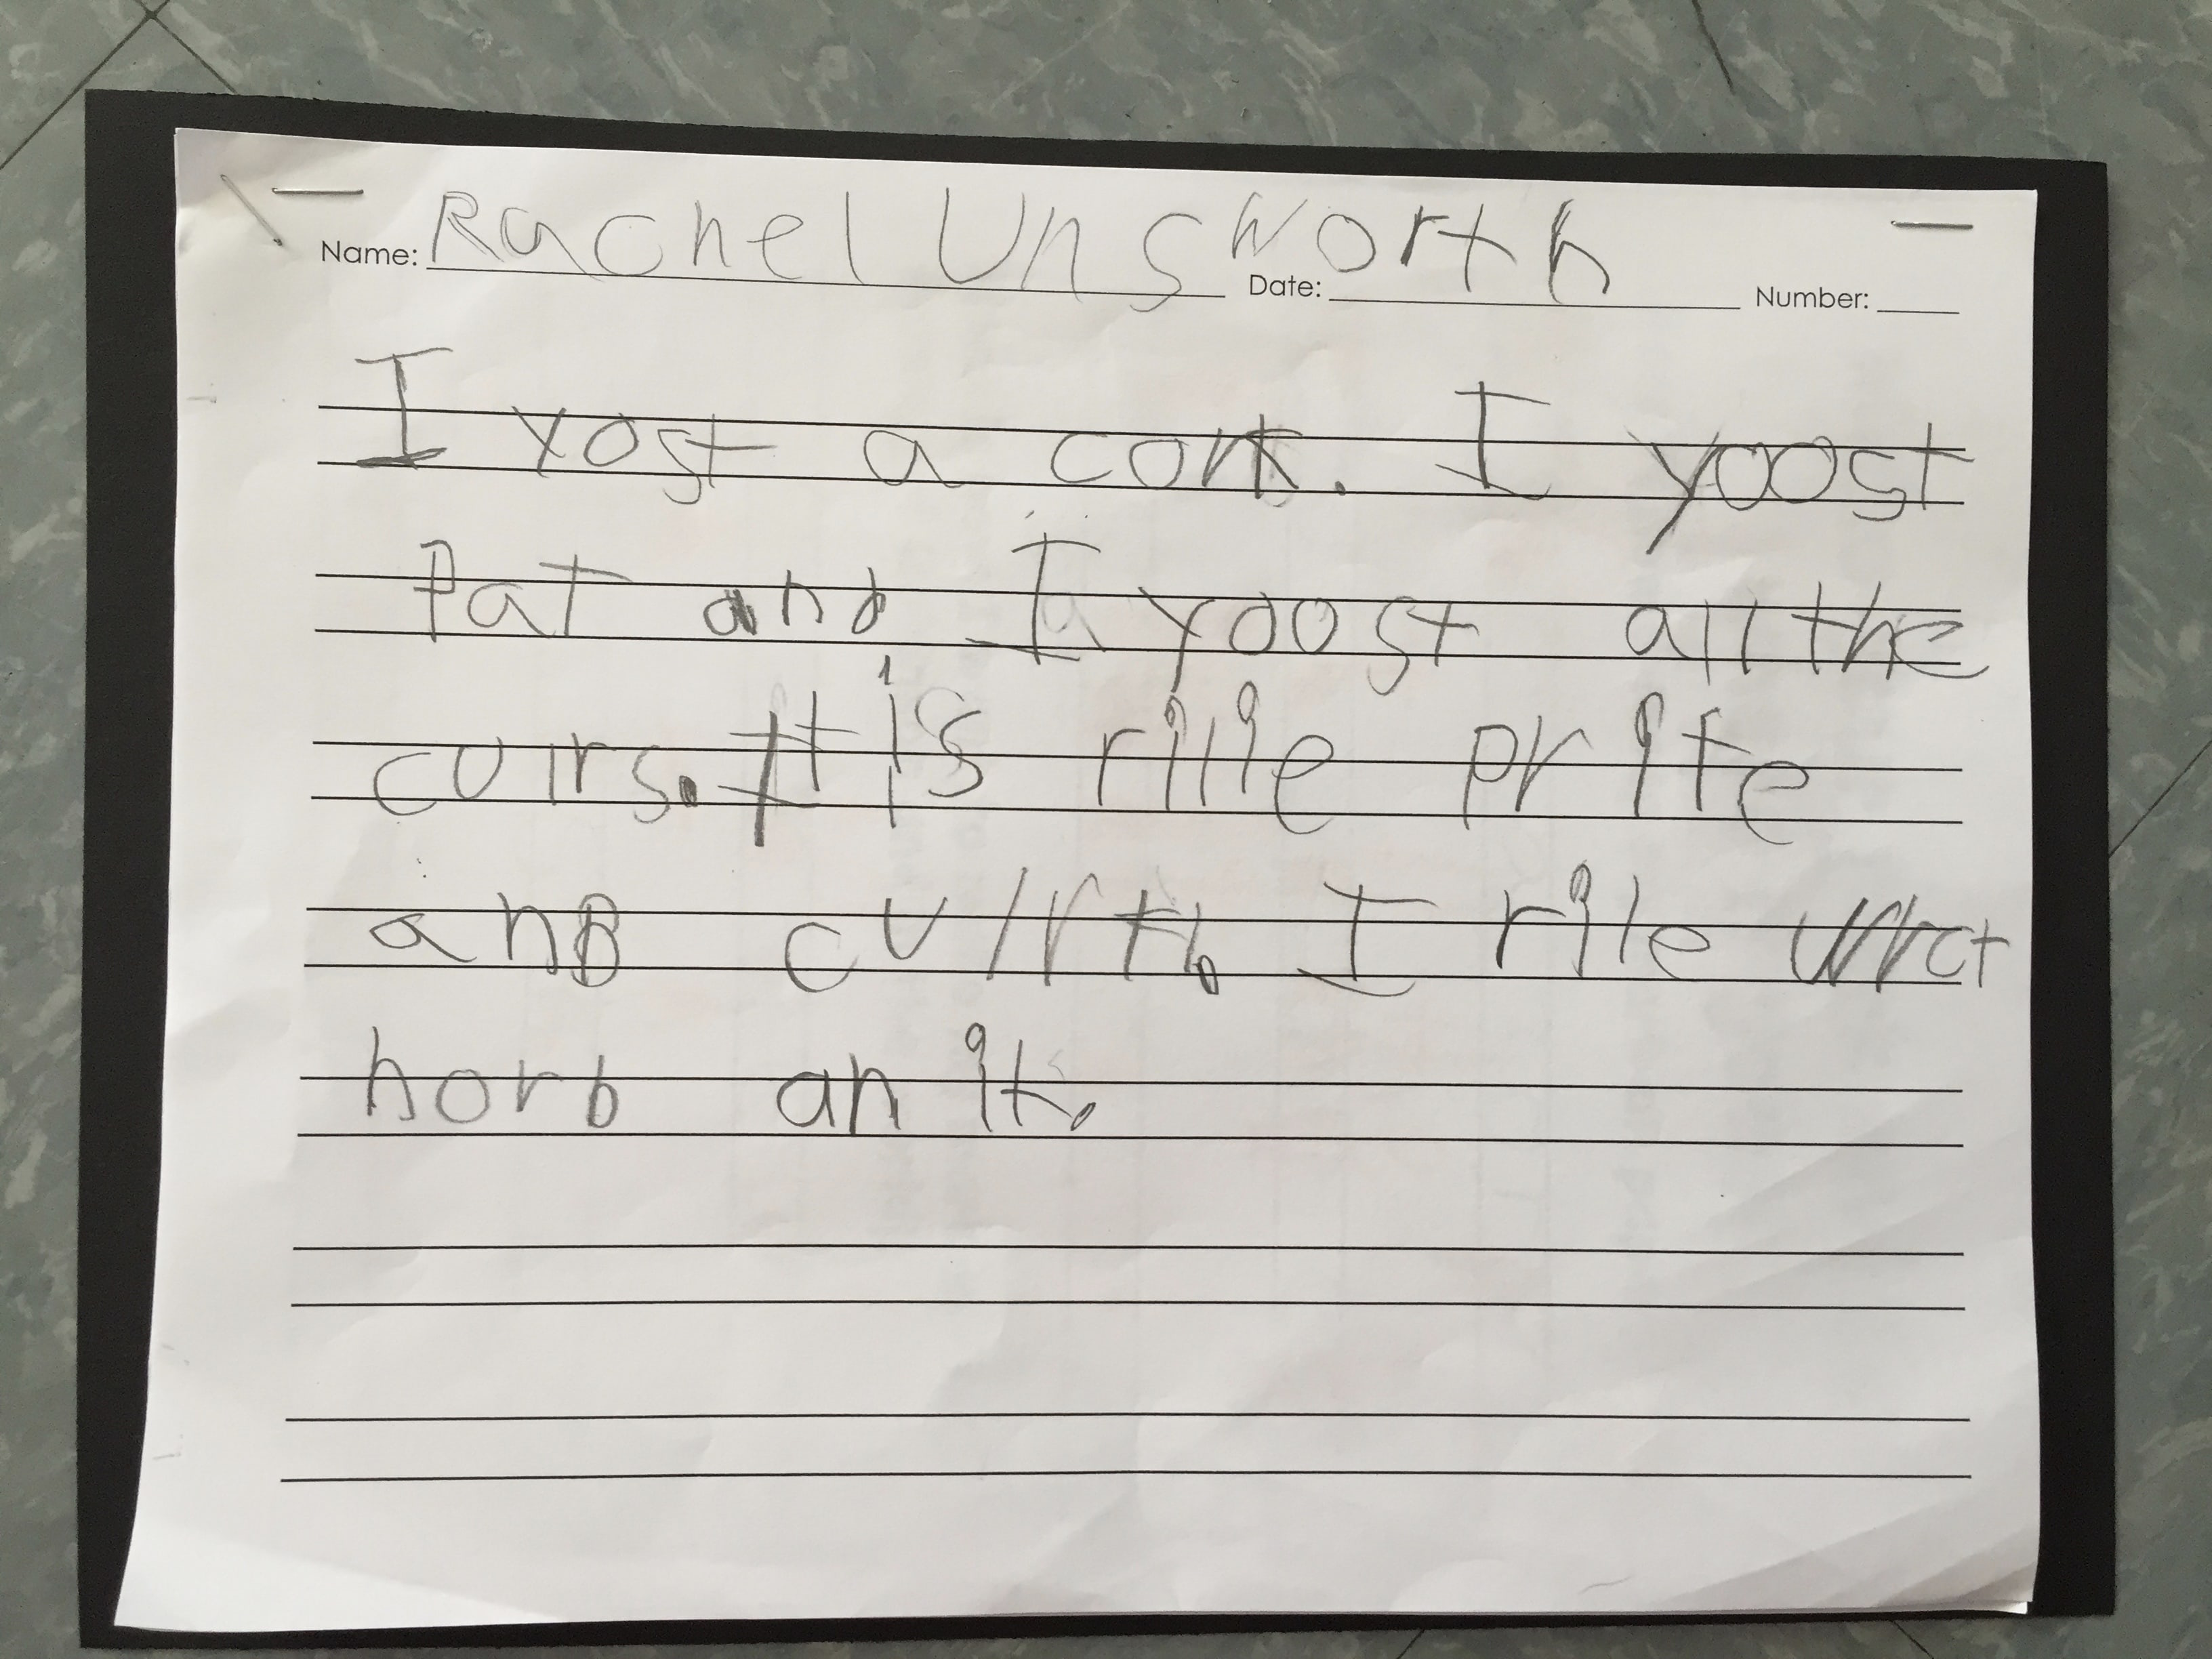 Name: Rachel Unsworth Date: Number:
I yost a cork. I yoost
Pat and I yoost all the
culrs. It is rilie prite
and culrth. I rile wrct
horb an it.